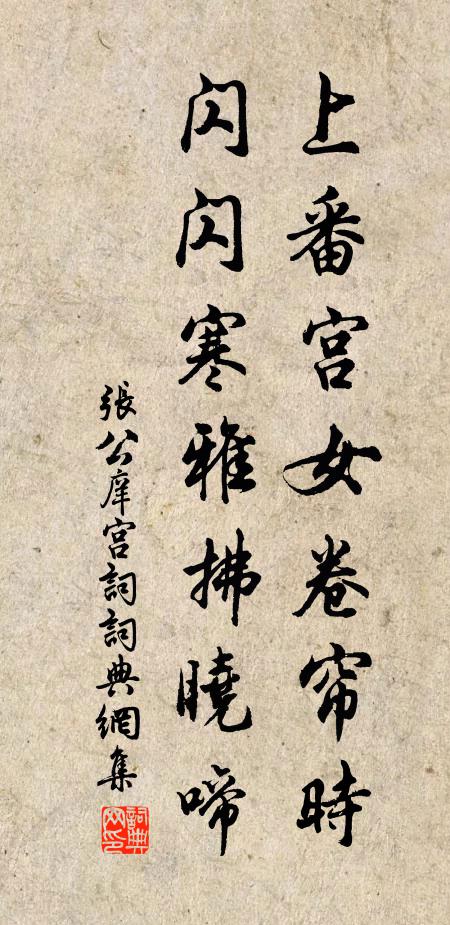 上番宫女卷帘時
闪闪寒雅拂曉啼
張公庠宫詞詞典網集
詞典網印